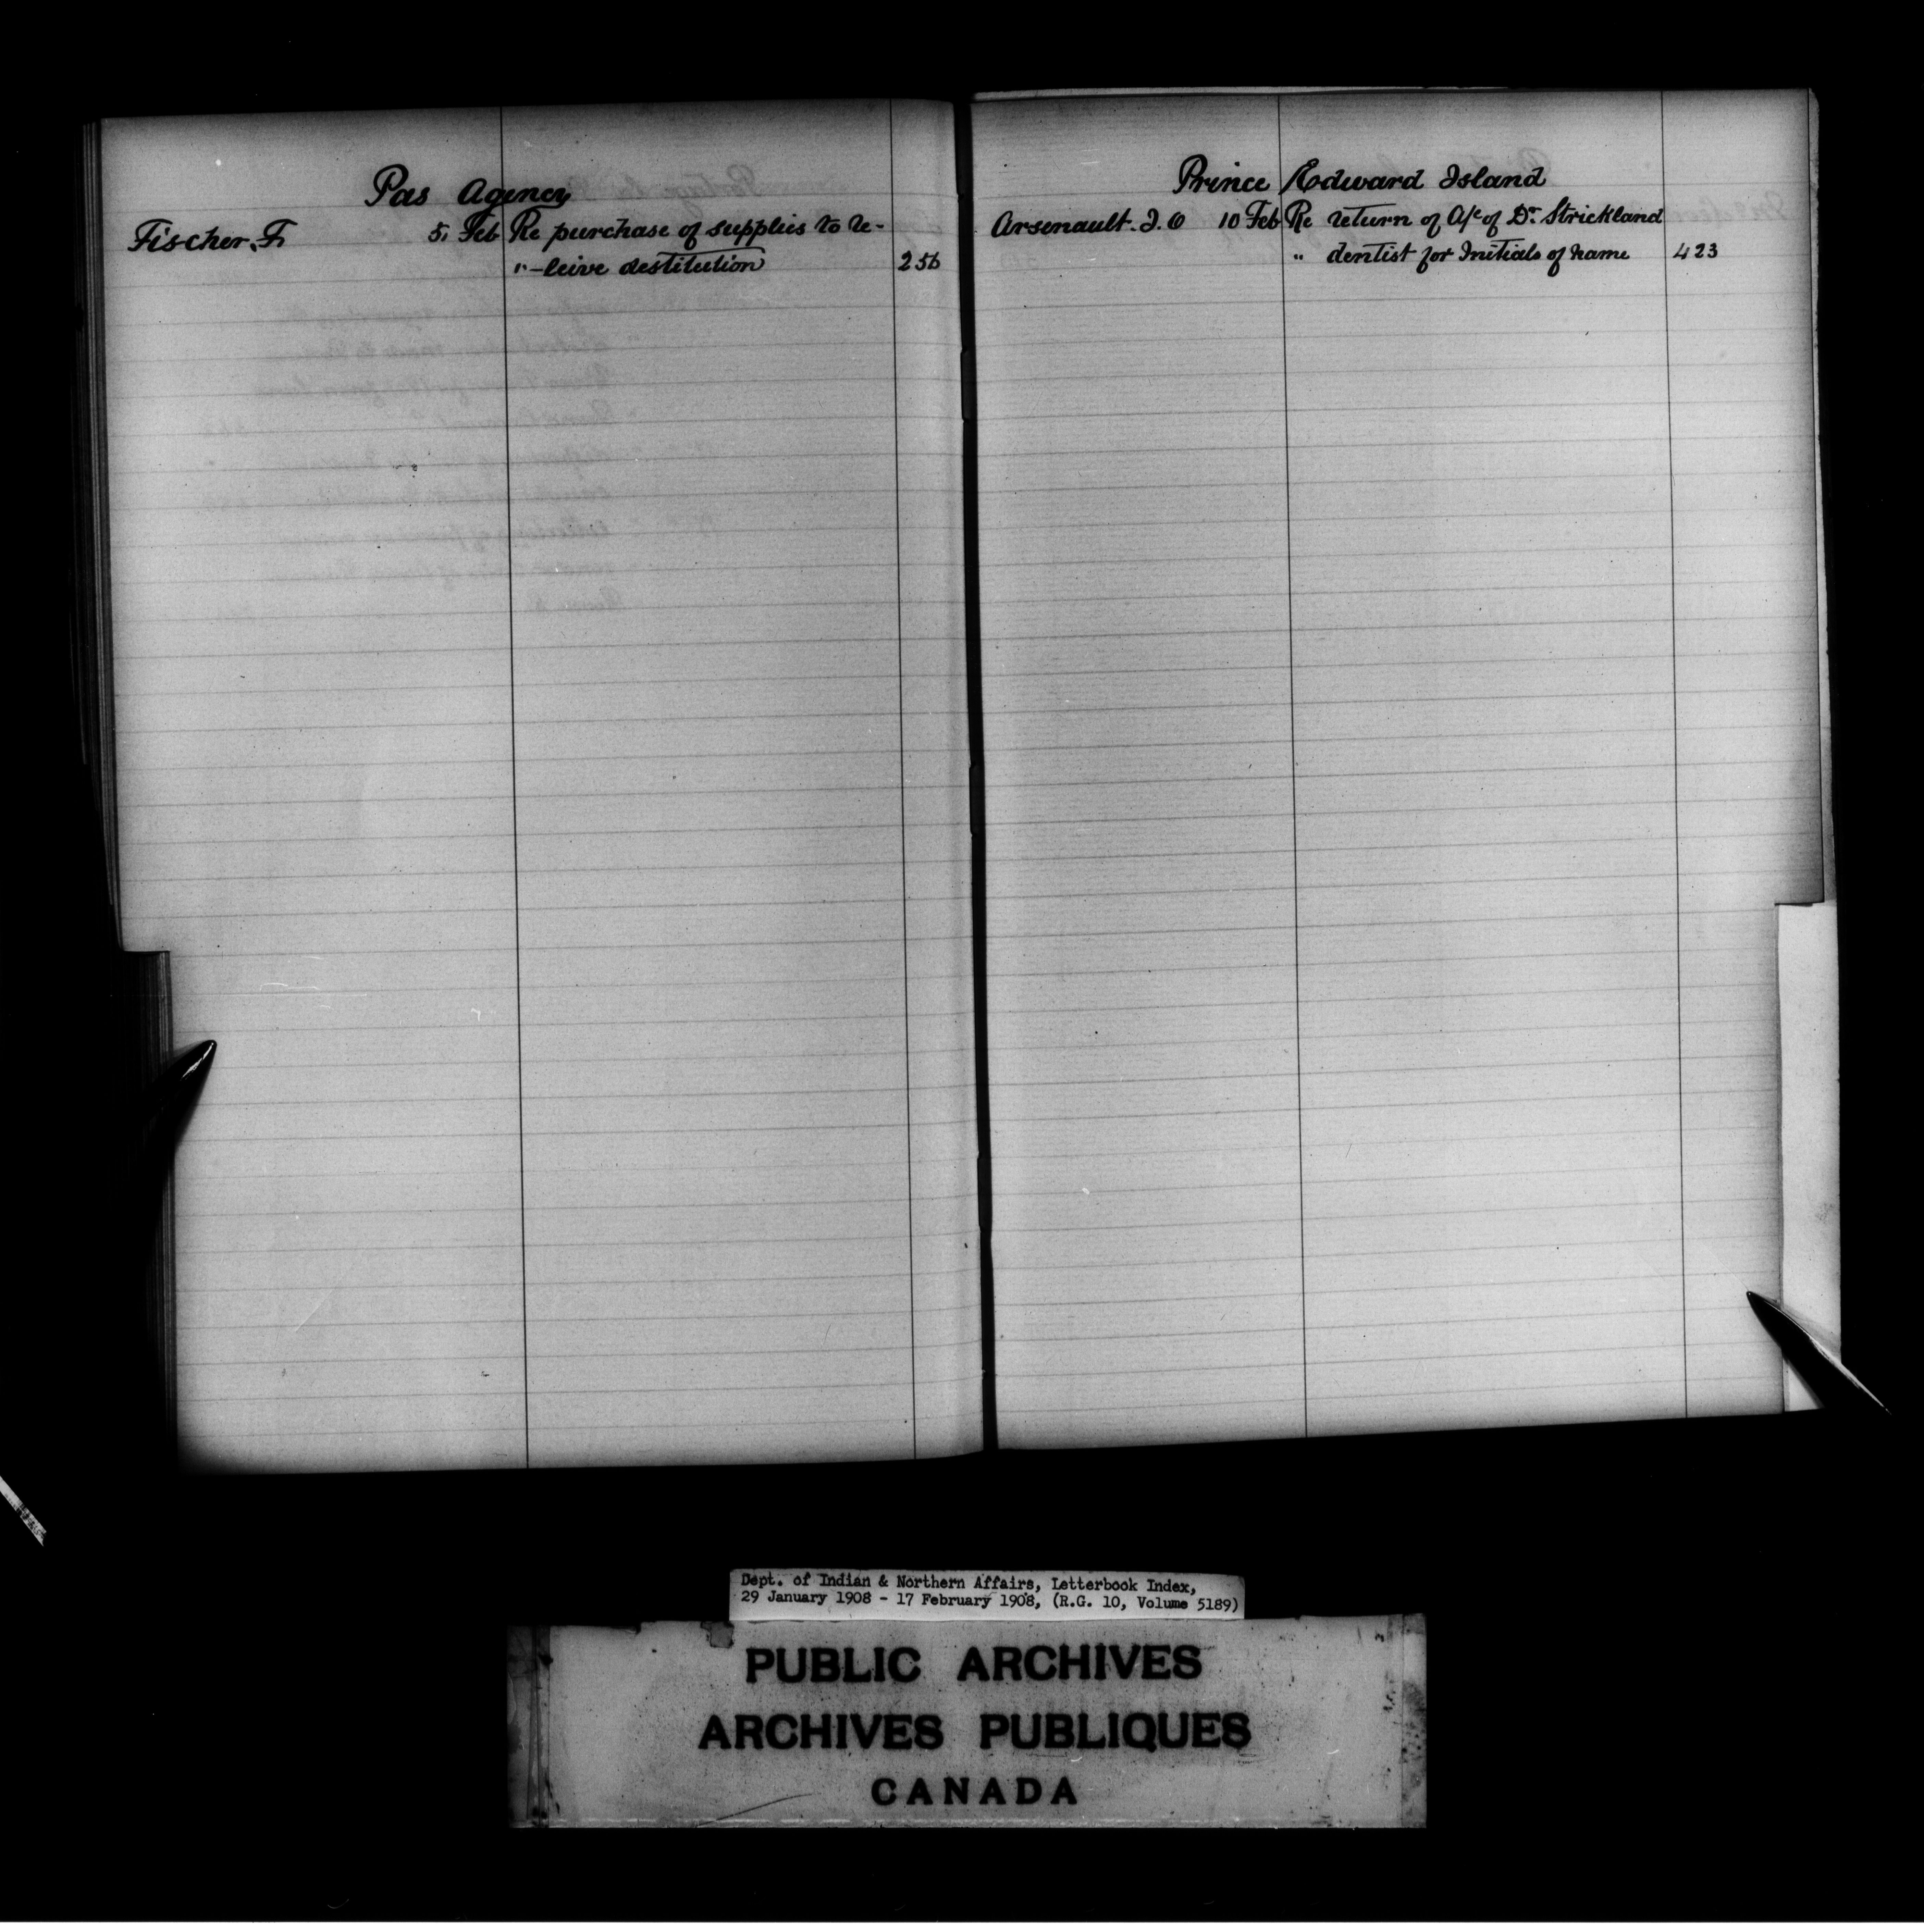 Pas Agency
Fischer, F. 5 Feb Re purchase of supplies to re-
" -leive destitution 256
Prince Edward Island
Arsenault. J. O 10 Feb Re return of A/c of Dr. Strickland
" dentist for Initials of name 423
Dept. of Indian & Northern Affairs, Letterbook Index,
29 January 1908 - 17 February 1908, (R.G. 10, Volume 5189)
PUBLIC ARCHIVES
ARCHIVES PUBLIQUES
CANADA